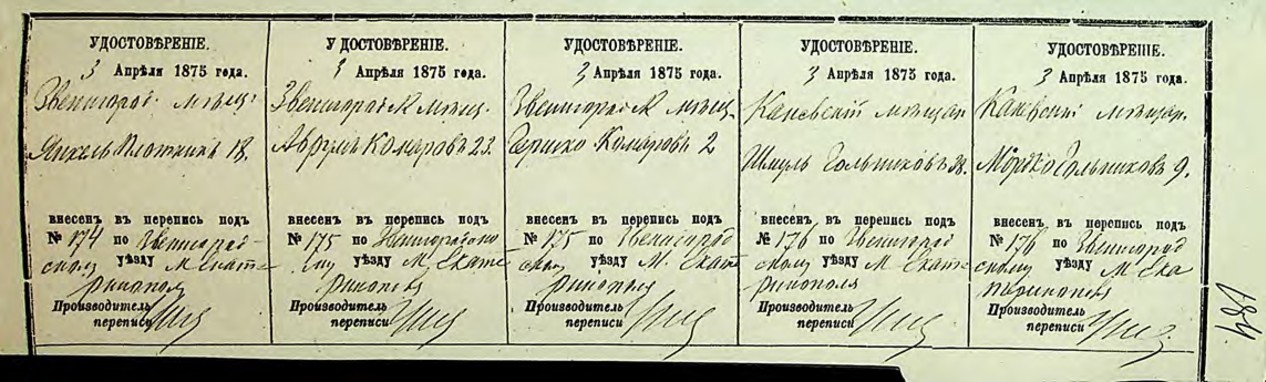 УДОСТОВѢРЕНІЕ.
3 Апрѣля 1875 года.
Звенигород. мѣщ.
Янкель Плоткинъ 18.
внесенъ въ перепись подъ
№ 174 по Звенигород-
скому уѣзду М Екате
ринополя
Производитель
переписи
У ДОСТОВѢРЕНІЕ.
3 Апрѣля 1875 года.
Звенигородск мѣщ.
Аврумъ Комаровъ 23.
внесенъ въ перепись подъ
№ 175 по Звенигородско
му уѣзду М. Екате
ринополя
Производитель
переписи
УДОСТОВѢРЕНІЕ.
3 Апрѣля 1875 года.
Звенигородск мѣщ.
Гершко Комаровъ 2
внесенъ въ перепись подъ
№ 175 по Звенигород
скому уѣзду М. Екате
ринополя
Производитель
переписи
УДОСТОВѢРЕНІЕ.
3 Апрѣля 1875 года.
Каневскій мѣщан
Шмуль Гольниковъ 38.
внесенъ въ перепись подъ
№ 176 по Звенигород
скому уѣзду М Екате
ринополя
Производитель
переписи
УДОСТОВѢРЕНІЕ.
3 Апрѣля 1875 года.
Каневскій мѣщан.
Мордко Гольниковъ 9.
внесенъ въ перепись подъ
№ 176 по Звенигород
скому уѣзду М Ека
теринополя
Производитель
переписи
184